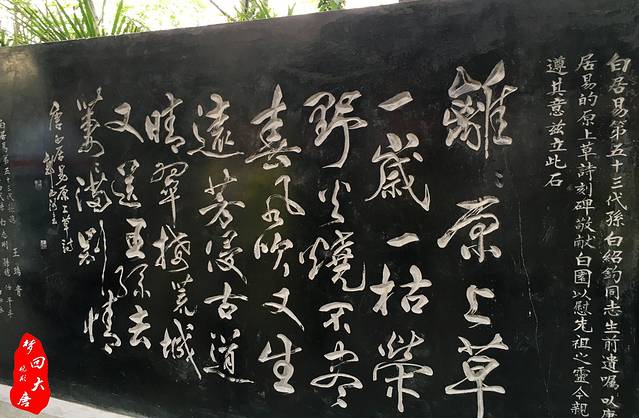 白居易第五十三代孫白紹鈞同志生前遺嘱以唐
居易的原上草詩刻碑敬献白園以慰先祖之靈今親
遵其意兹立此石
離〻原上草
一歲一枯榮
野火燒不尽
春風吹又生
遠芳侵古道
晴翠接荒城
又送王孫去
萋滿別情
唐白居易原上草詩
白居易第五十三代
梦回大唐